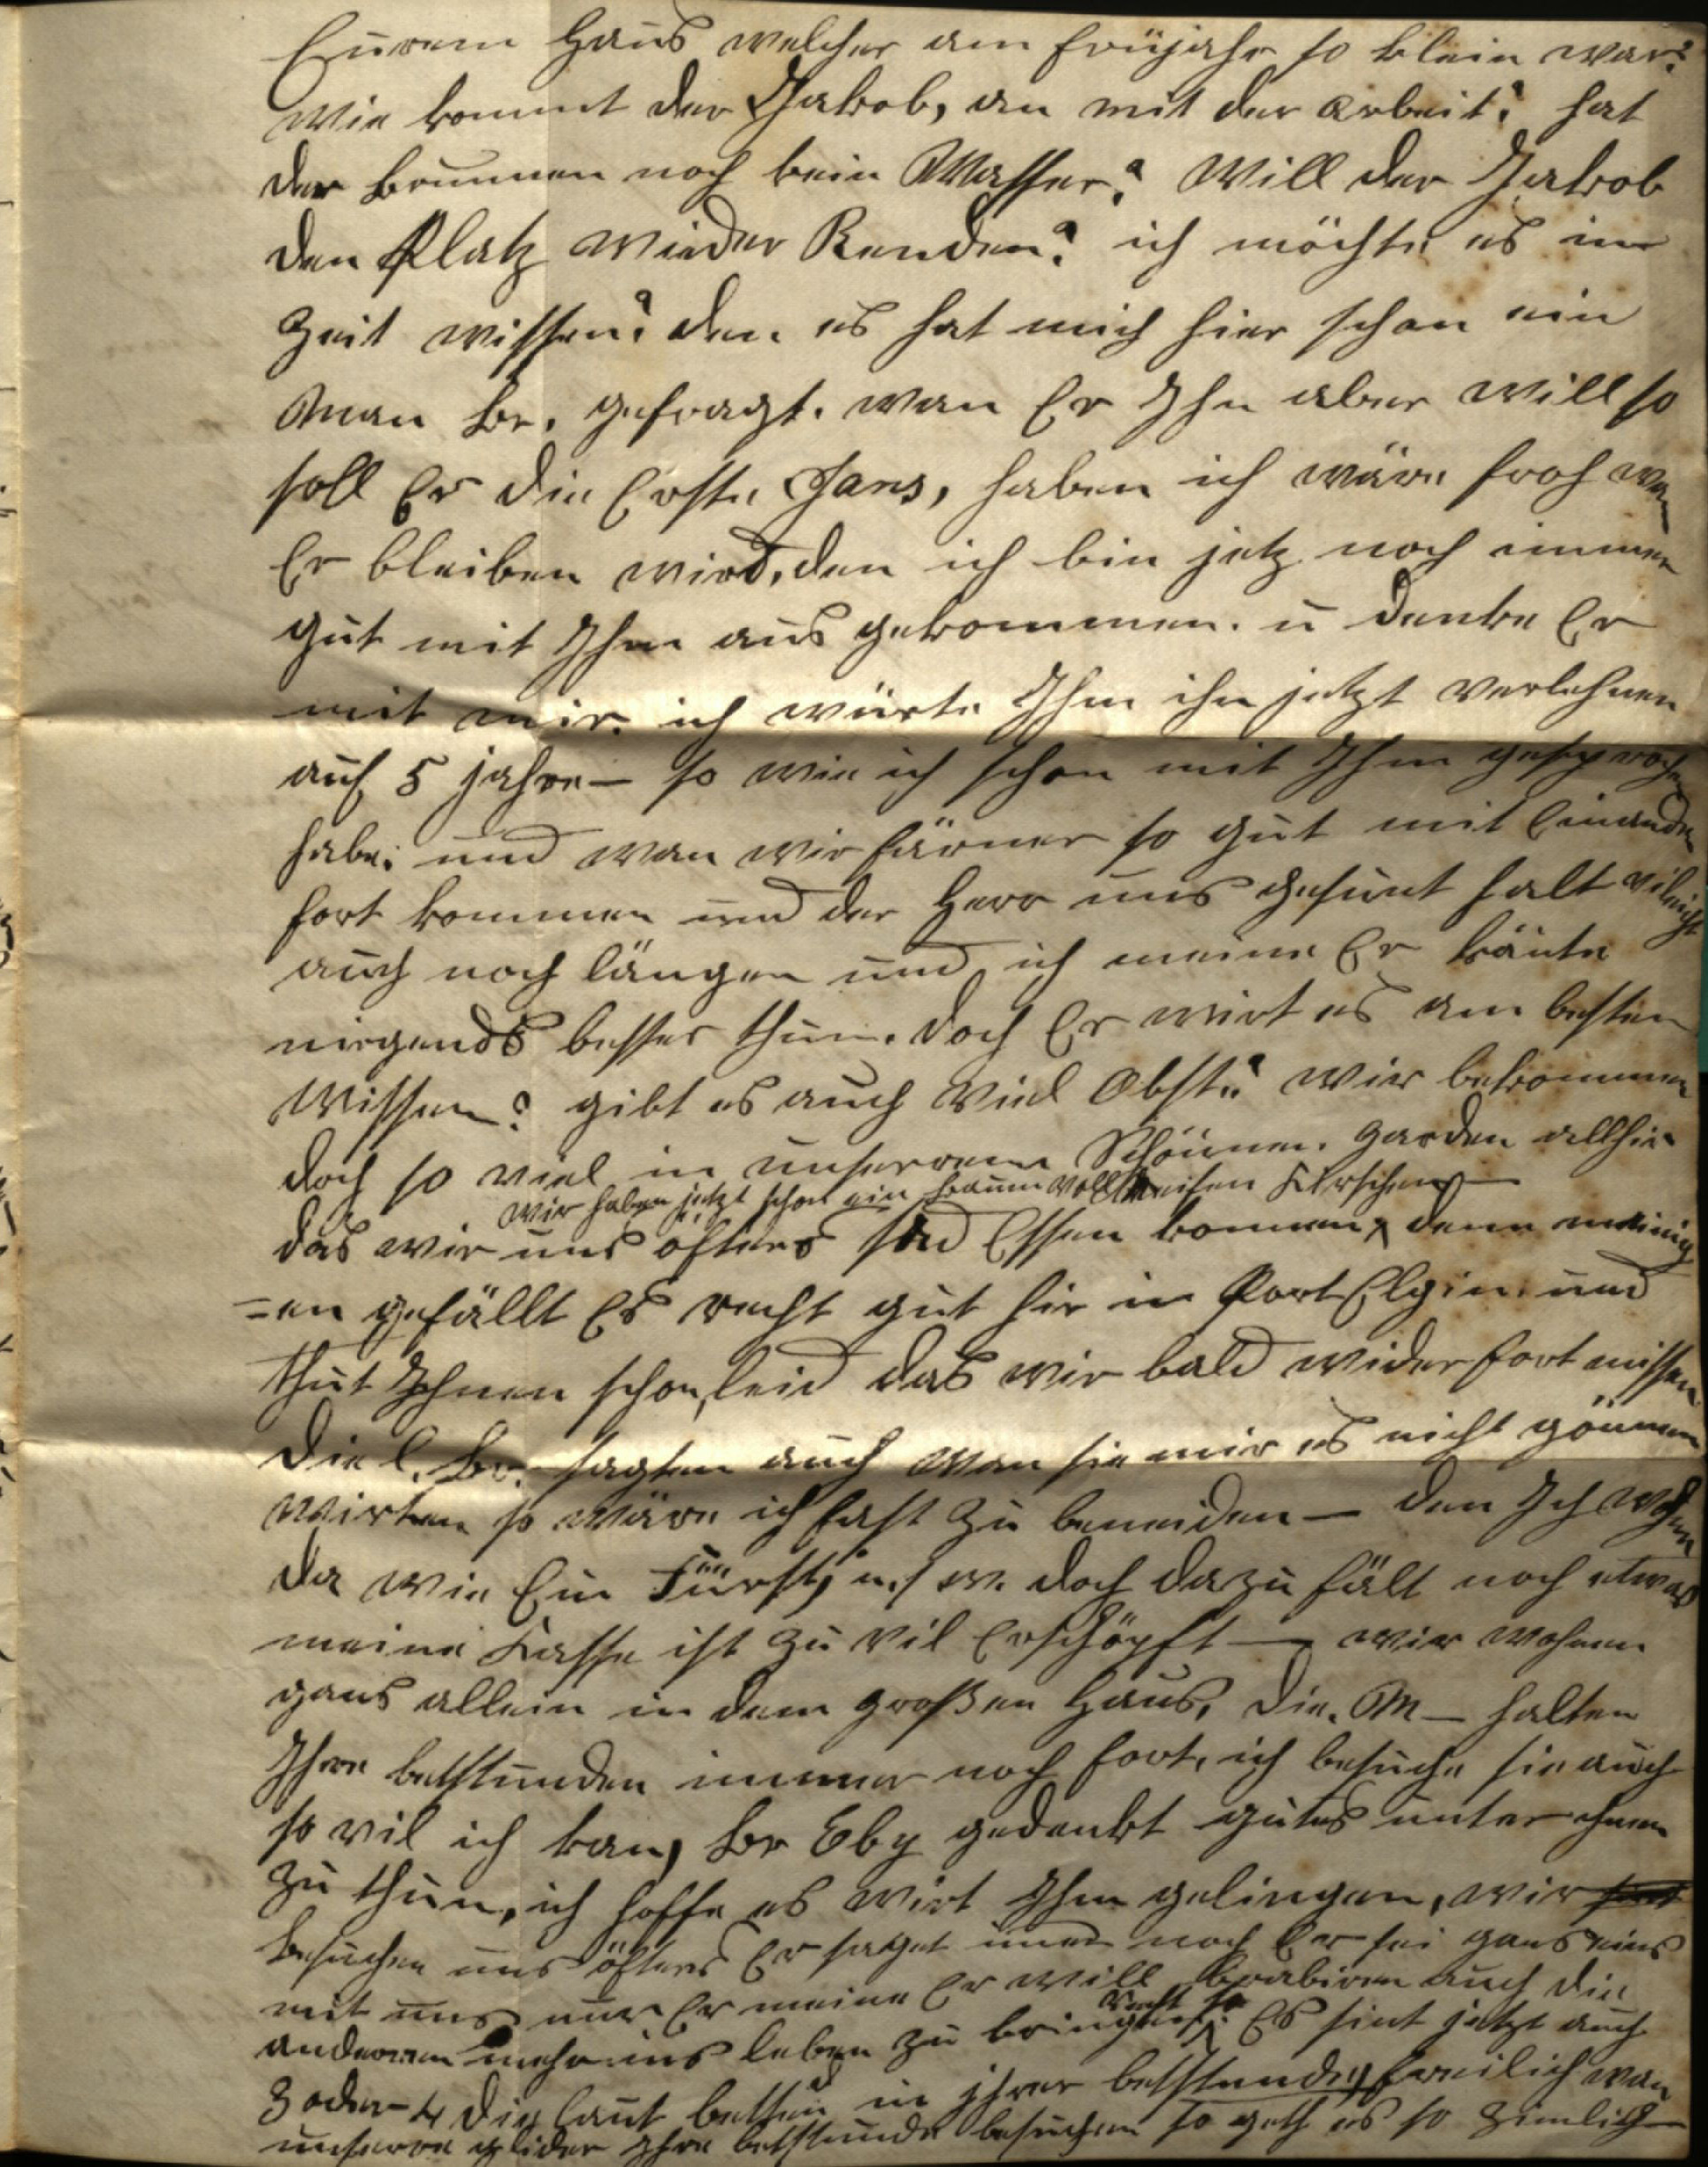 Eurem Haus welcher am früjahr so klein war?
wie kommt der Jakob, an mit der arbeit? hat
der brunnen noch kein Wasser? Will der Jakob
den Platz wieder Renden? ich möchte es in
Zeit wissen? den es hat mich hier schon ein
Man Br. gefragt. wan Er Ihn aber will so
soll Er die Erste Jans, haben ich wäre froh wan
Er bleiben wird, den ich bin jetz noch immer
gut mit Ihm aus gekommen. u denke Er
mit mir. ich würte Ihm ihn jetzt verlehnen
auf 5 jahre — so wie ich schon mit Ihm gesprochen
habe; und wan wir färner so gut mit Einander
fort kommen und der Herr uns gesunt halt vileicht
auch noch länger und ich meine Er känte
nirgends besser thun. doch Er wirt es am besten
Wissen? gibt es auch viel Obst? wir bekommen
doch so viel in unserem Schönen. Garden allhir
wir haben jetzt schon ein baum voll reifen Kirschen —
das wir uns öfters sad Essen konnen, denn meinig
=en gefällt Es recht gut hir in Port Elgin und
thut Ihnen schon leid das wir bald wider fort missen
Die l. Br. sagten auch wan sie mir es nicht gönnen
wirten so wäre ich fast zu beneiden — den Ich wohne
da wie Ein Fürst, u. s. w. doch dazu fält noch etwas
meine Kasse ist zu vil Erschöpft — wir wohnen
gans allein in dem großen Haus, Die. M — halten
Ihre betstunden immer noch fort, ich besuche sie auch
so vil ich kan, Br Eby gedenkt gutes unter ihnen
zu thun, ich hoffe es wirt Ihm gelingen, wir
besuchen uns öfters Er saget imer noch Er sei gans eins
mit uns nur Er meine Er will brabiren auch die
anderen mehr ins leben zu bringen. Es sint jetzt auch
recht so
3 oder 4 die laut betten in jhrer betstunde, freilich wan
unsere glider Ihre betstunde besuchen so geth es so zimlich